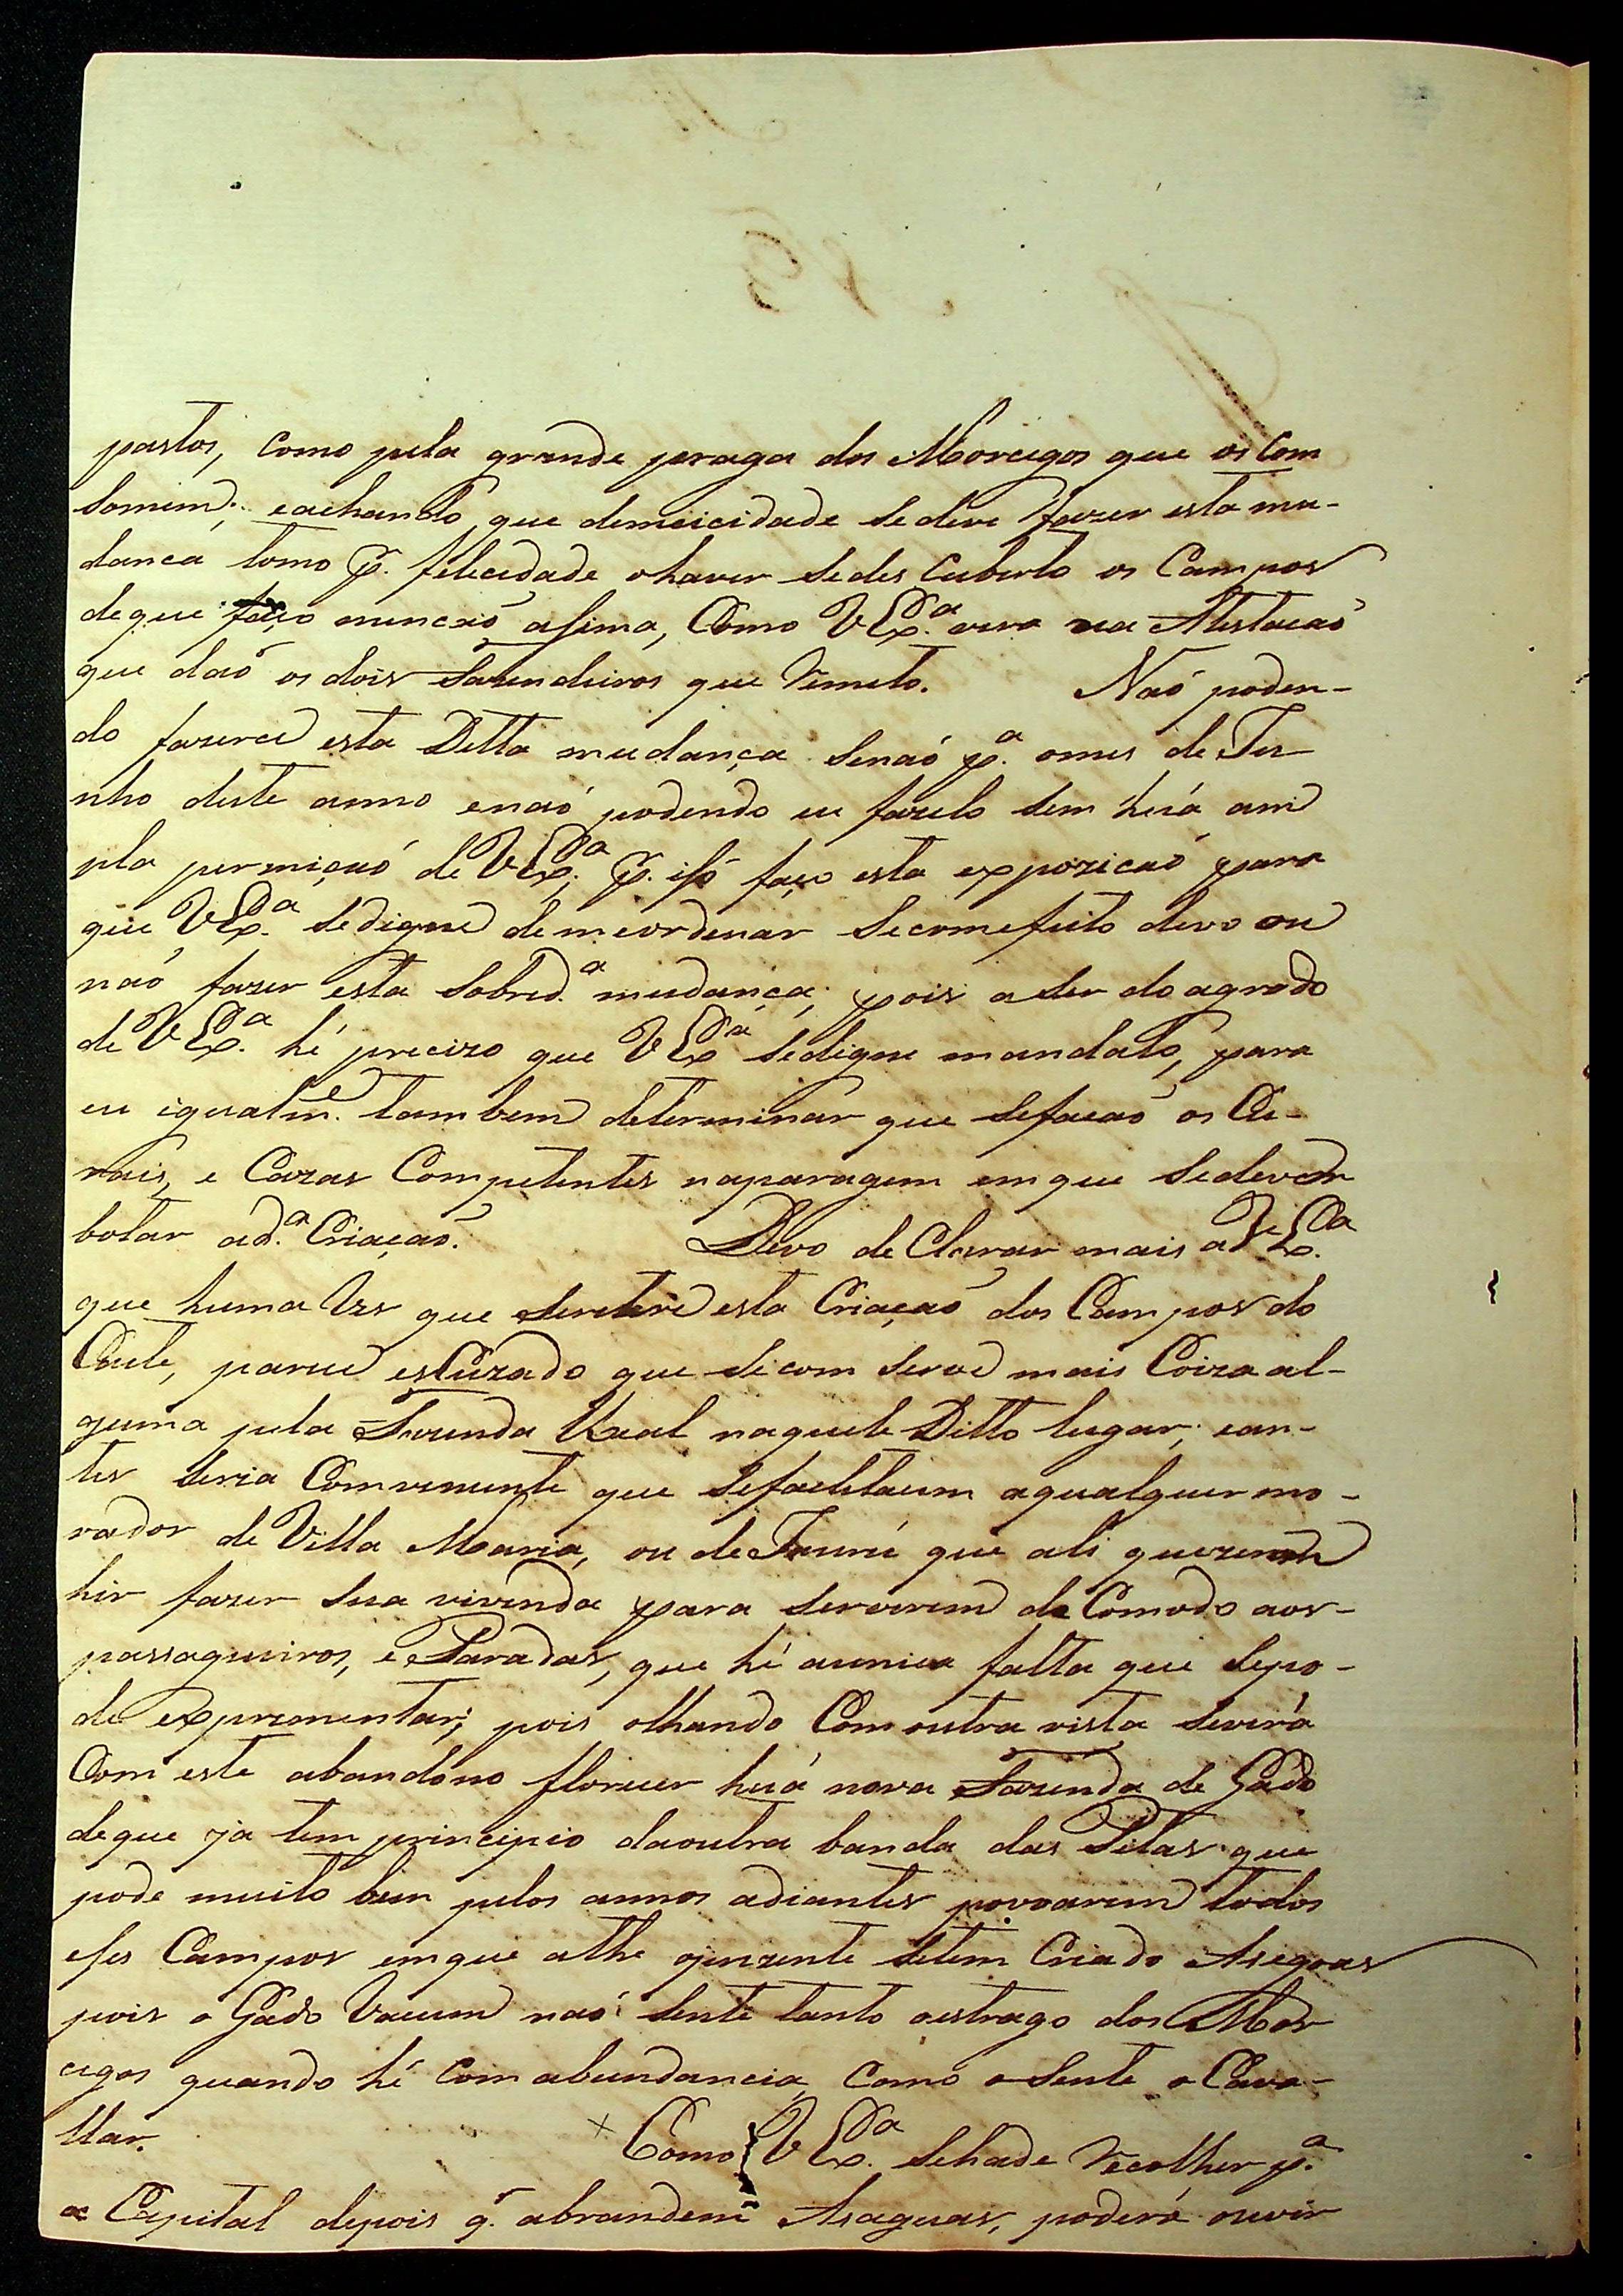 pastos, como pela grande peraga dos Morcegos que os Com
somem; eachando que demicicidade sedeve fazer esta mu-
danca tomo p.r felecidade ohaver sedes Cuberto os Campos
deque faço mencaõ asima, Como VEx.ª vera na Atestacaõ
que daõ os dois Fazendeiros que Remeto. Naõ poden-
do fazerce esta Ditta mudança senaõ p.ª omes de Ju
nho deste anno enaõ podendo eu fazelo sem huã am
pla permiçaõ de VEx.ª p.r iso faço esta expozicaõ para
que VEx.ª sedigne demeordenar secomefeito devo ou
naõ fazer esta sobred.ª mudança; pois a ser do agrado
de VEx.ª hé precizo que VEx.ª sedigne mandalo, para
eu igualm.e tambem determinar que sefacaõ os Cu-
rais, e Cazas Competentes naparagem emque sedevem
botar ad.ª Criaçaõ. Devo de Clarar mais aVEx.ª
que huma Ves que seretire esta Criaçaõ dos Campos do
Caite, parece esCuzado que secom serve mais Coiza al-
guma pela Fazenda Real naquele Ditto lugar; ean-
tes seria Comveniente que sefacletacem aqualquer mo-
rador de Villa Maria, ou de Jaurú que ali quizerem
hir fazer sua vivenda para servirem de Comodo aos
passageiros, e Paradas, que hé aunica falta que sepo-
de exprementar; pois olhando Comoutra vista severá
Com este abandono florecer huã nova Fazenda de Gado
deque já tem principio daoutra banda das Pitas que
pode muito bem pelos annos adiantes povoarem todos
eses Campos emque athe oprezente setem Criado Asegoas
pois o Gado Vacum naõ sente tanto oestrago dos Mor
cegos quando hé Com abundancia Como o sente o Cava-
llar. + Como VEx.ª sehade Recolher p.ª
a Capital depois q. abrandem Asaguas, poderá ouvir